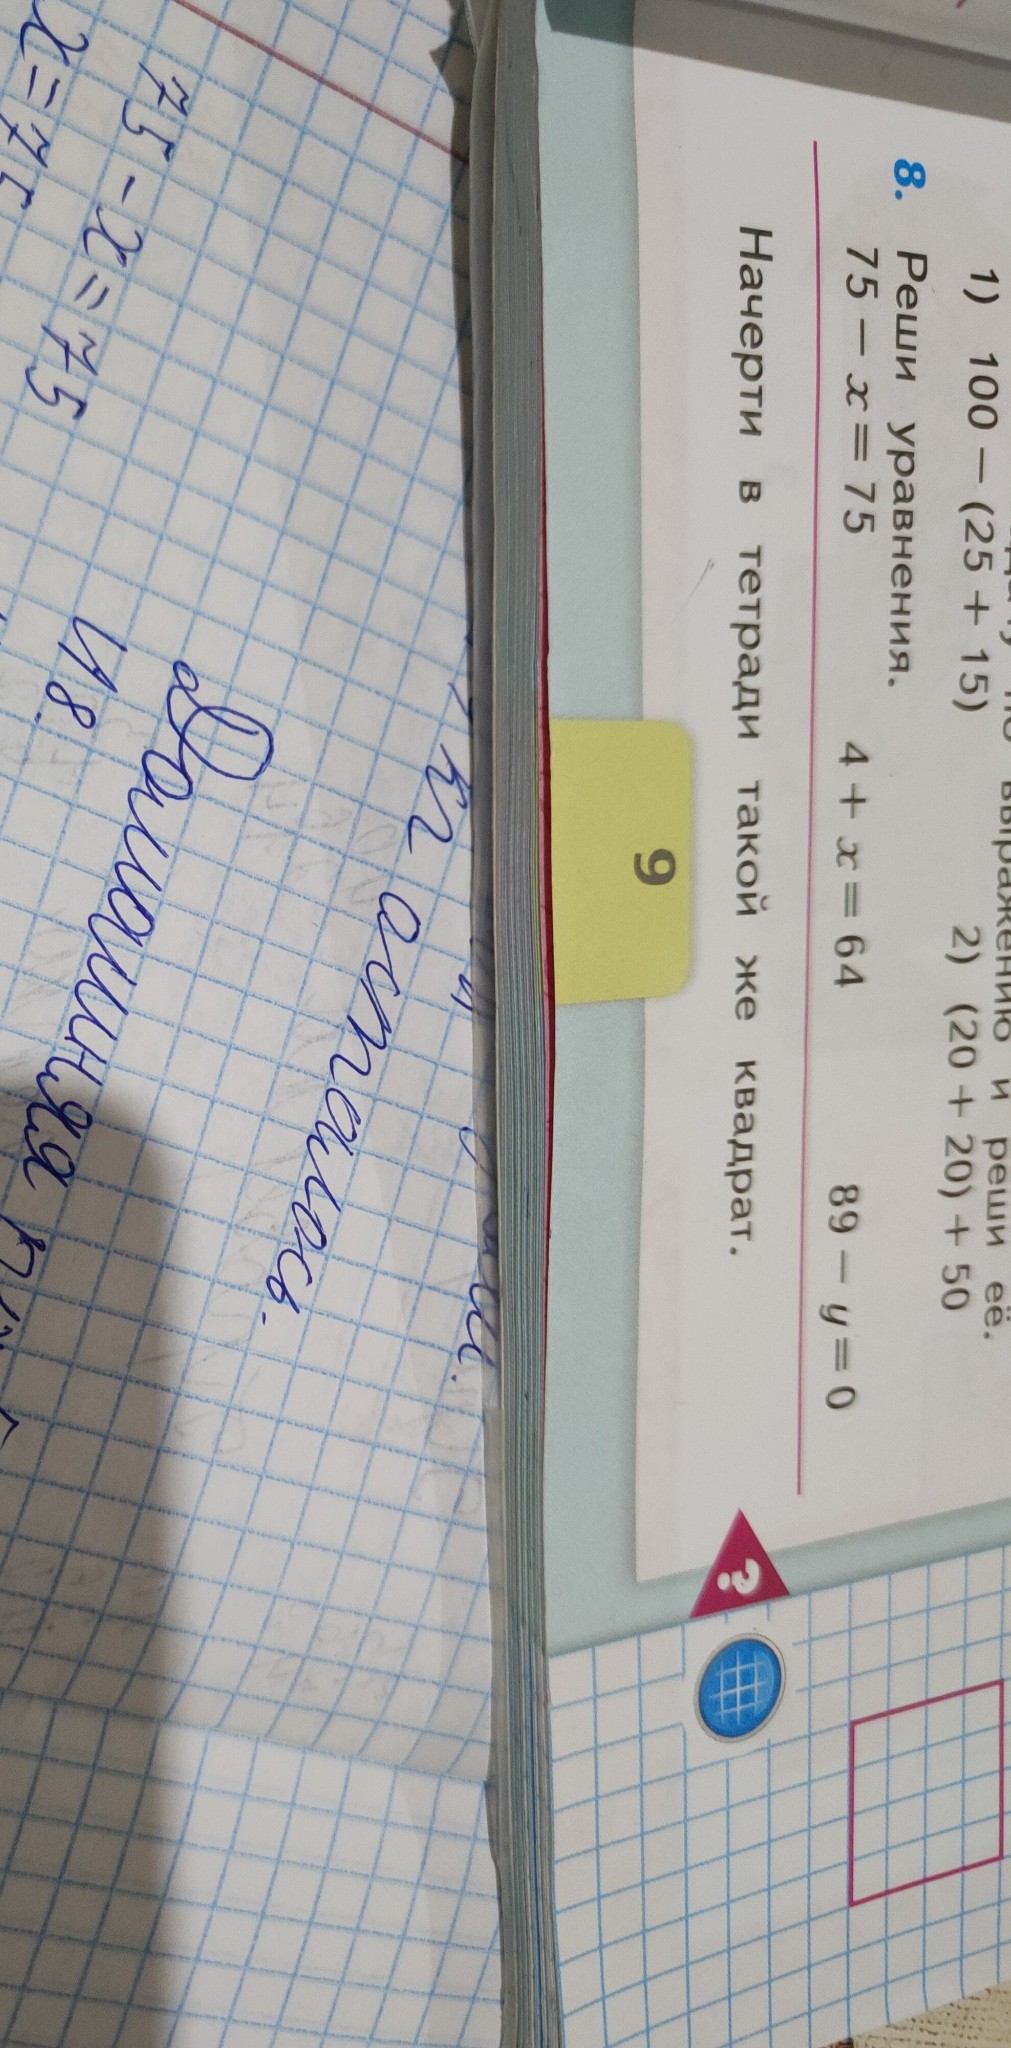 выражению и реши её.
1) 100 – (25 + 15) 2) (20 + 20) + 50
8. Реши уравнения.
75 – x = 75 4 + x = 64 89 – y = 0
Начерти в тетради такой же квадрат.
?
9
кг осталось.
Домашняя
N8.
75 - x = 75
x = 75